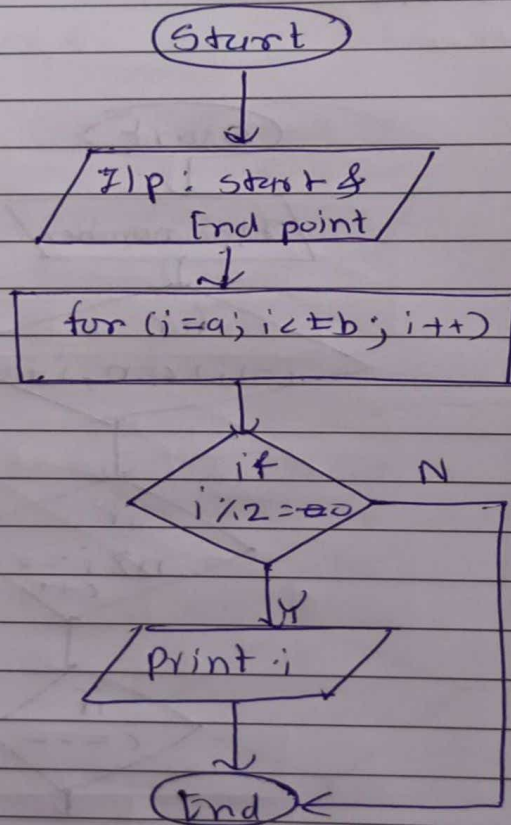 Start
I/p: start &
End point
for (i=a; i<=b; i++)
if
i%2==0
N
Y
Print i
End